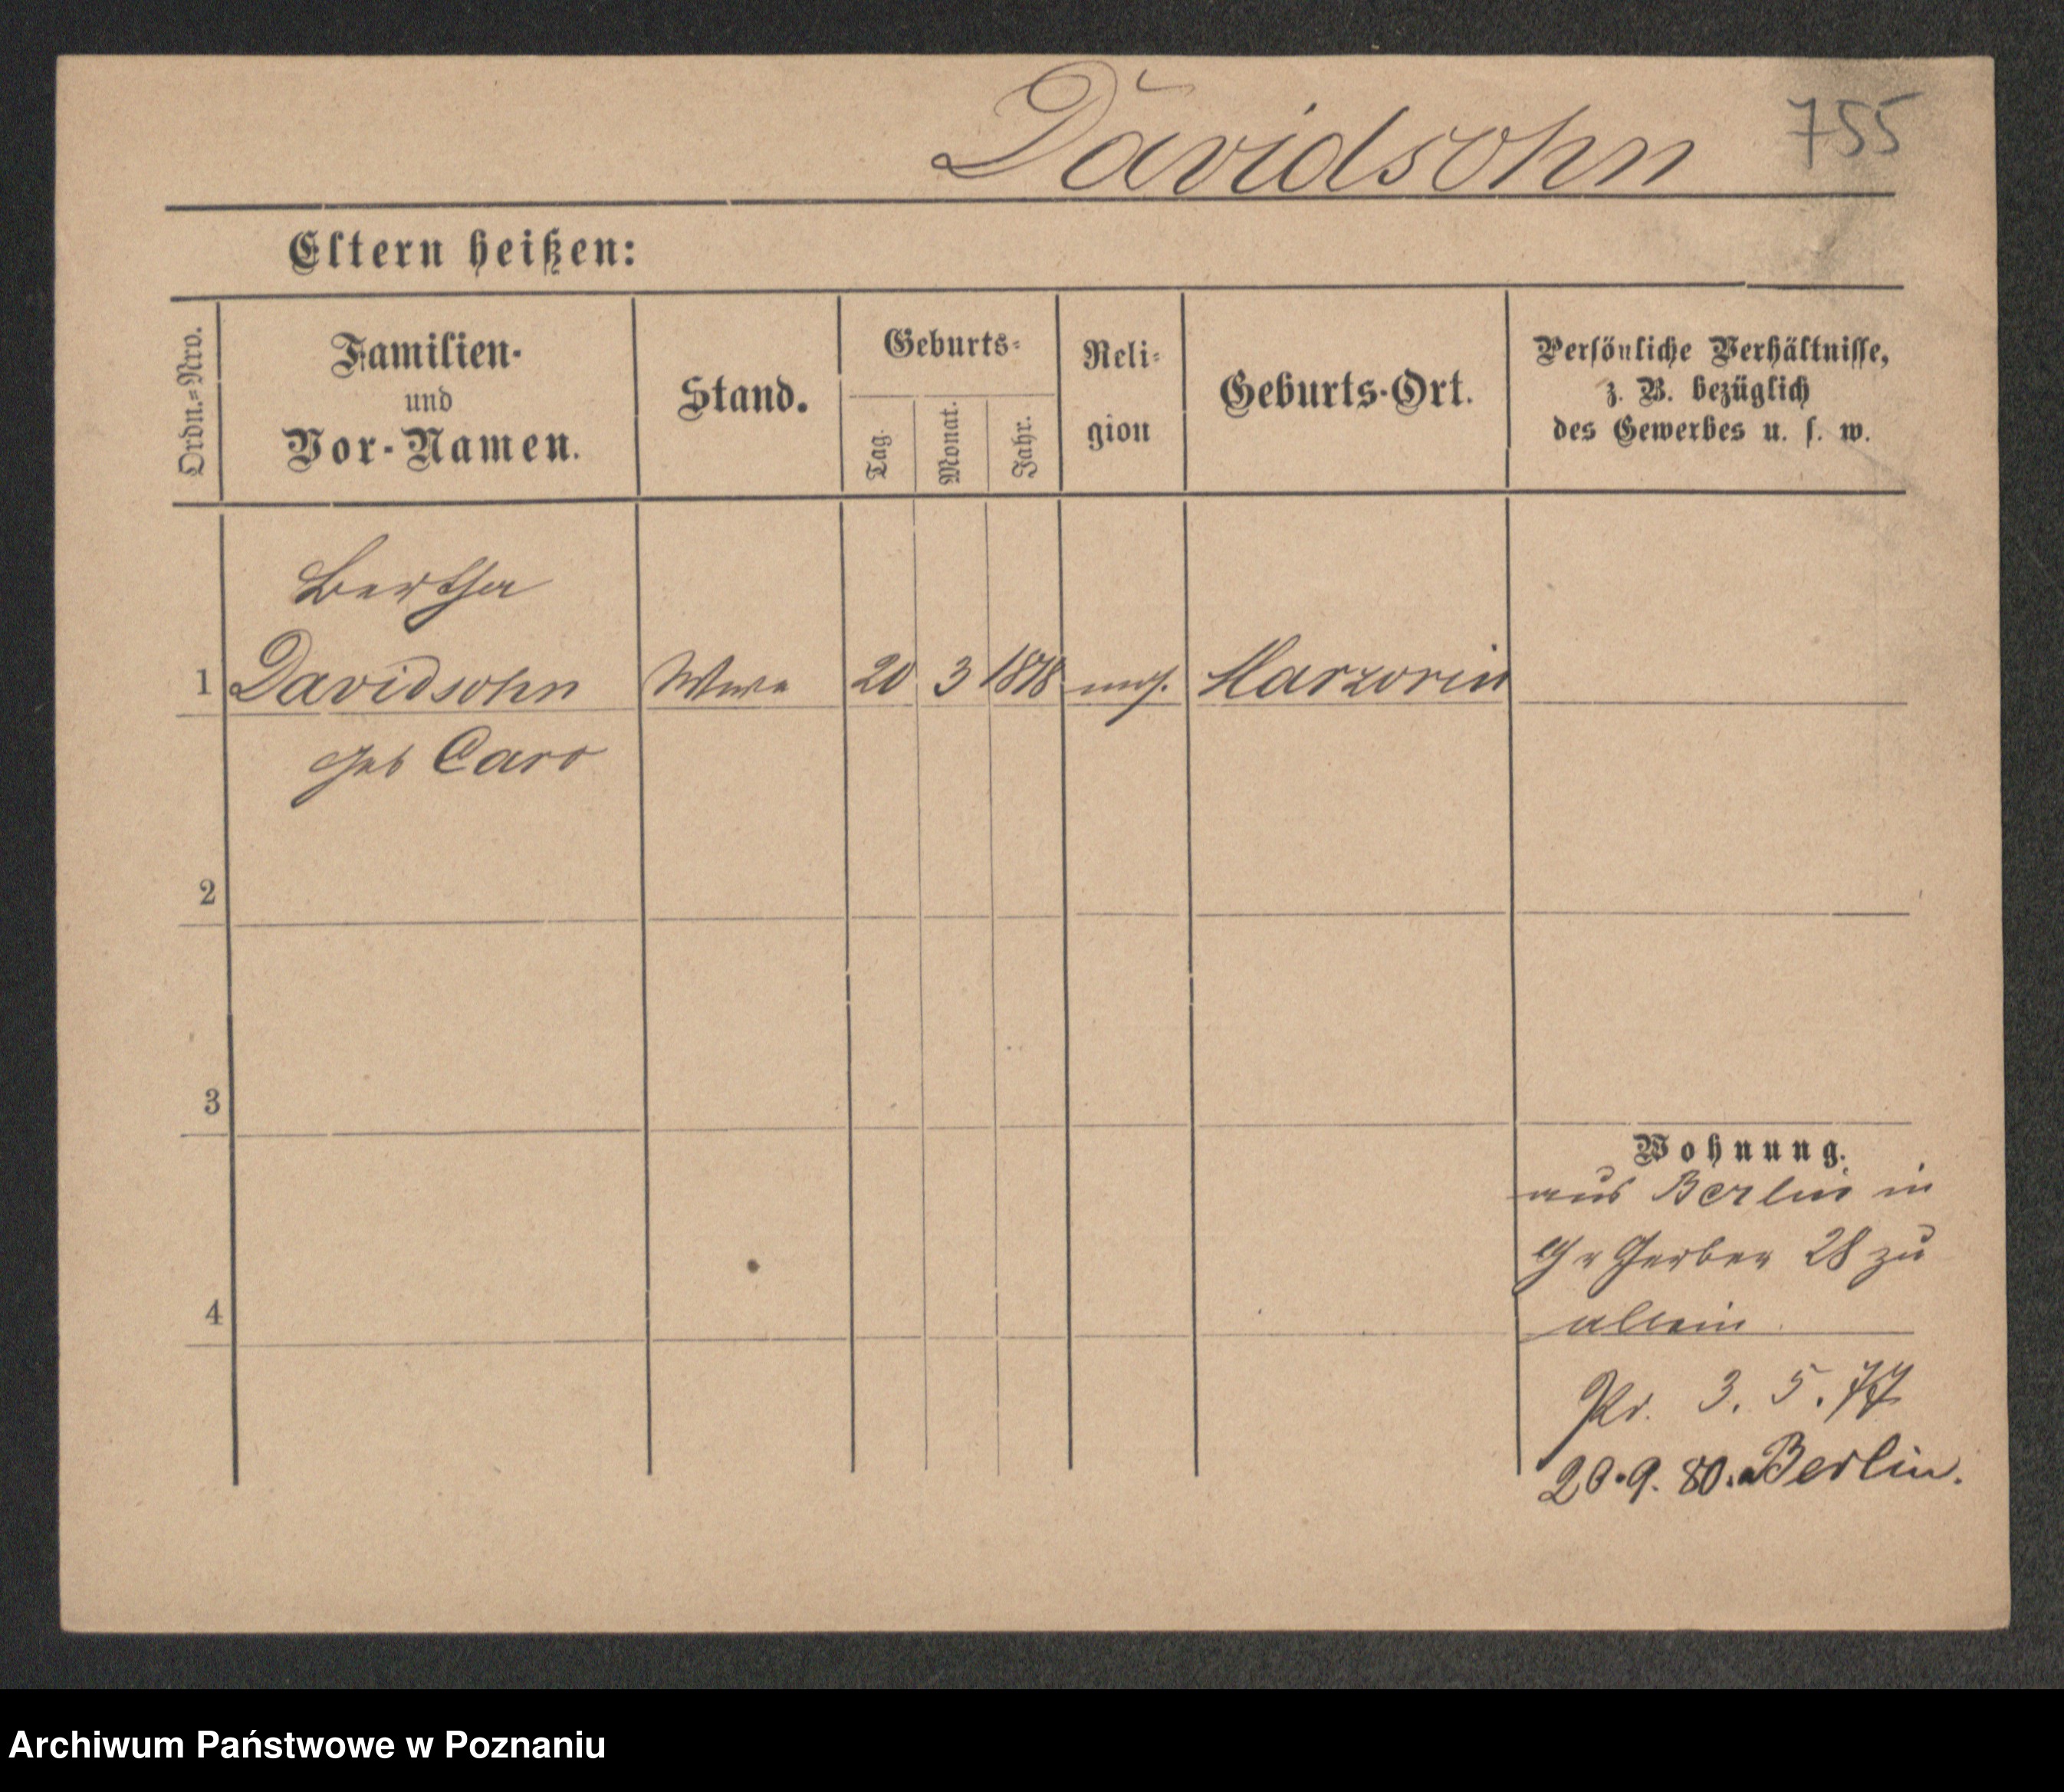 Davidsohn 755
Eltern heißen:
Ordn.-Nro.
Familien-
und
Vor-Namen.
Stand.
Geburts-
Tag.
Monat.
Jahr.
Reli-
gion
Geburts-Ort.
Persönliche Verhältnisse,
z. B. bezüglich
des Gewerbes u. s. w.
Bertha
1 Davidsohn Wwe 20 3 18 mos.
geb Caro
2
3
Wohnung.
aus Berlin in
Gr Gerber 28 zu
allein
4
Pr. 3. 5. 77
20.9.80. Berlin.
Archiwum Państwowe w Poznaniu